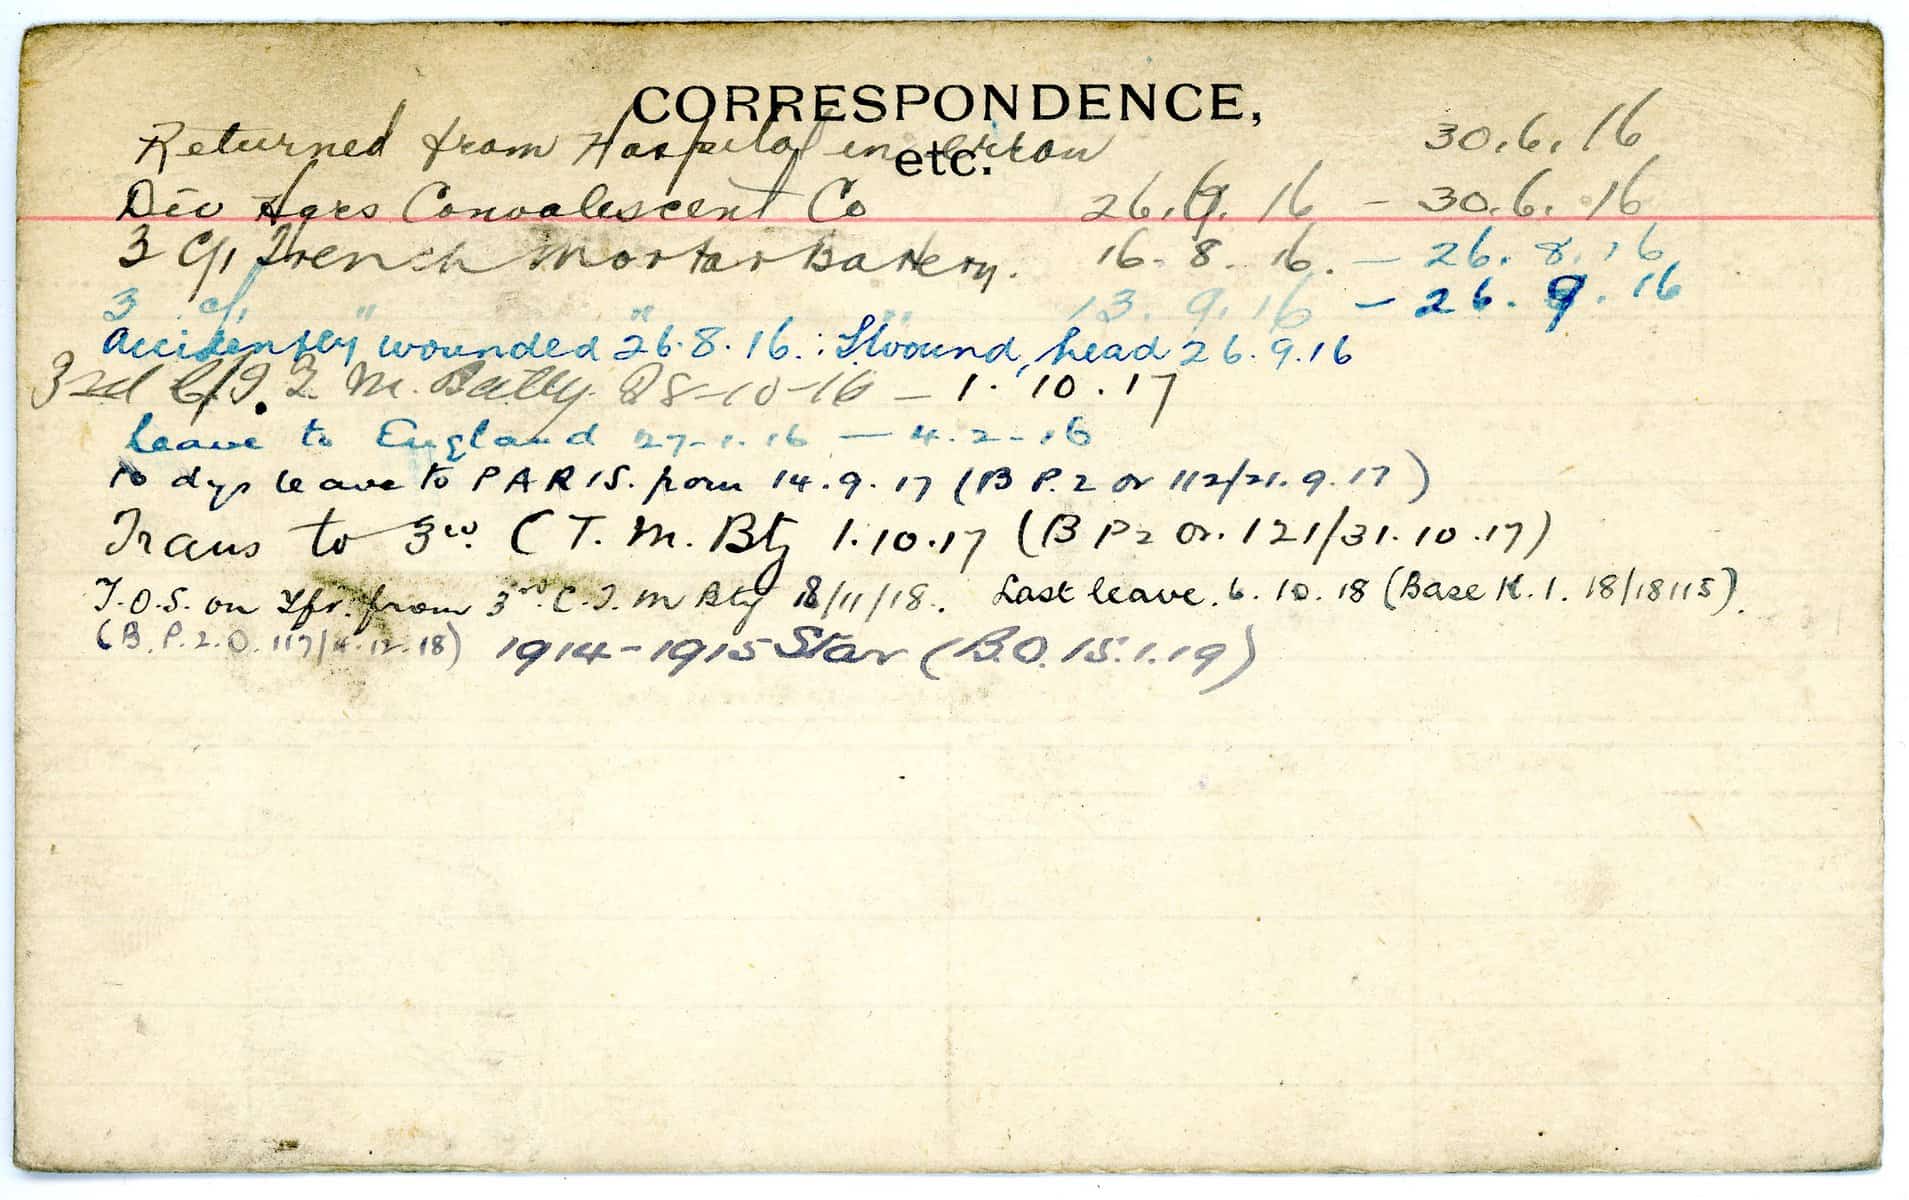 CORRESPONDENCE,
etc.
Returned from Hospital in error 30.6.16
Div Hqrs Convalescent Co 26.6.16 - 30.6.16
3 C/, Trench Mortar Battery. 16.8.16. - 26.8.16
3 C/, " " " 13.9.16 - 26.9.16
Accidently wounded 26.8.16. : S. Wound, head 26.9.16
3rd C/. T. M. Batty. 28-10-16 - 1.10.17
Leave to England 27-1-16 - 4-2-16
10 dys leave to PARIS. from 14.9.17 (B P.2 Or 112/21.9.17)
Trans to 3rd C T. M. Bty 1.10.17 (B P2 Or. 121/31.10.17)
T.O.S. on Tfr. from 3rd C.T. M Bty 18/11/18. Last leave. 6.10.18 (Base K.1. 18/18115).
(B.P.2.O. 117/4.12.18) 1914-1915 Star (B.O. 15.1.19)